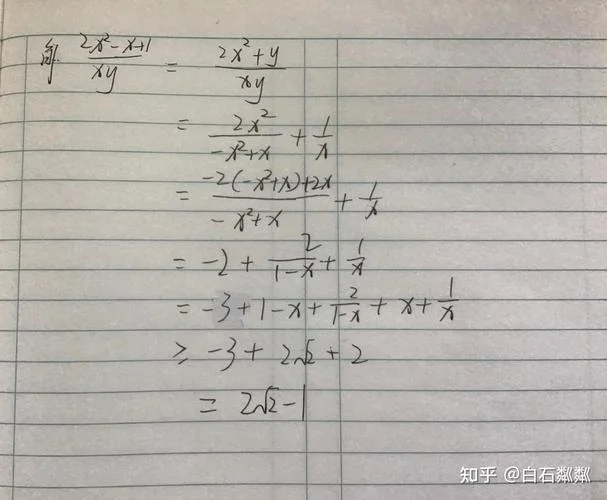 解 \frac{2x²-x+1}{xy} = \frac{2x²+y}{xy}
= \frac{2x²}{-x²+x} + \frac{1}{x}
= \frac{-2(-x²+x)+2x}{-x²+x} + \frac{1}{x}
= -2 + \frac{2}{1-x} + \frac{1}{x}
= -3 + 1-x + \frac{2}{1-x} + x + \frac{1}{x}
≥ -3 + 2√2 + 2
= 2√2 - 1
知乎 @白石粼粼